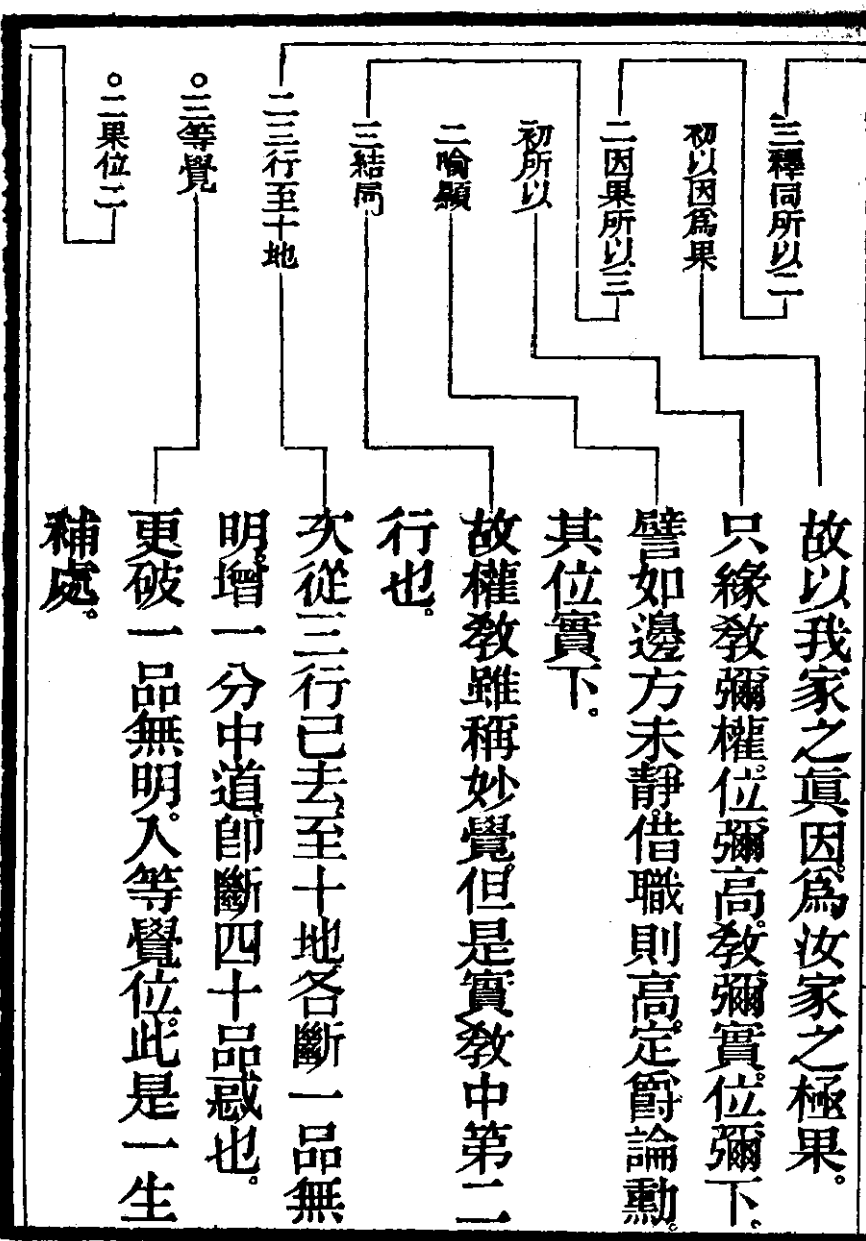 三釋同所以二
初以因爲果
二因果所以三
初所以
二喻顯
三結同
二三行至十地
○三等覺
○二果位二
故以我家之眞因。爲汝家之極果。
只緣教彌權。位彌高。教彌實。位彌下。
譬如邊方未靜。借職則高。定爵論勳。
其位實下。
故權教雖稱妙覺。但是實教中第二
行也。
次從三行已去、至十地各斷一品無
明。增一分中道、卽斷四十品惑也。
更破一品無明。入等覺位。此是一生
補處。